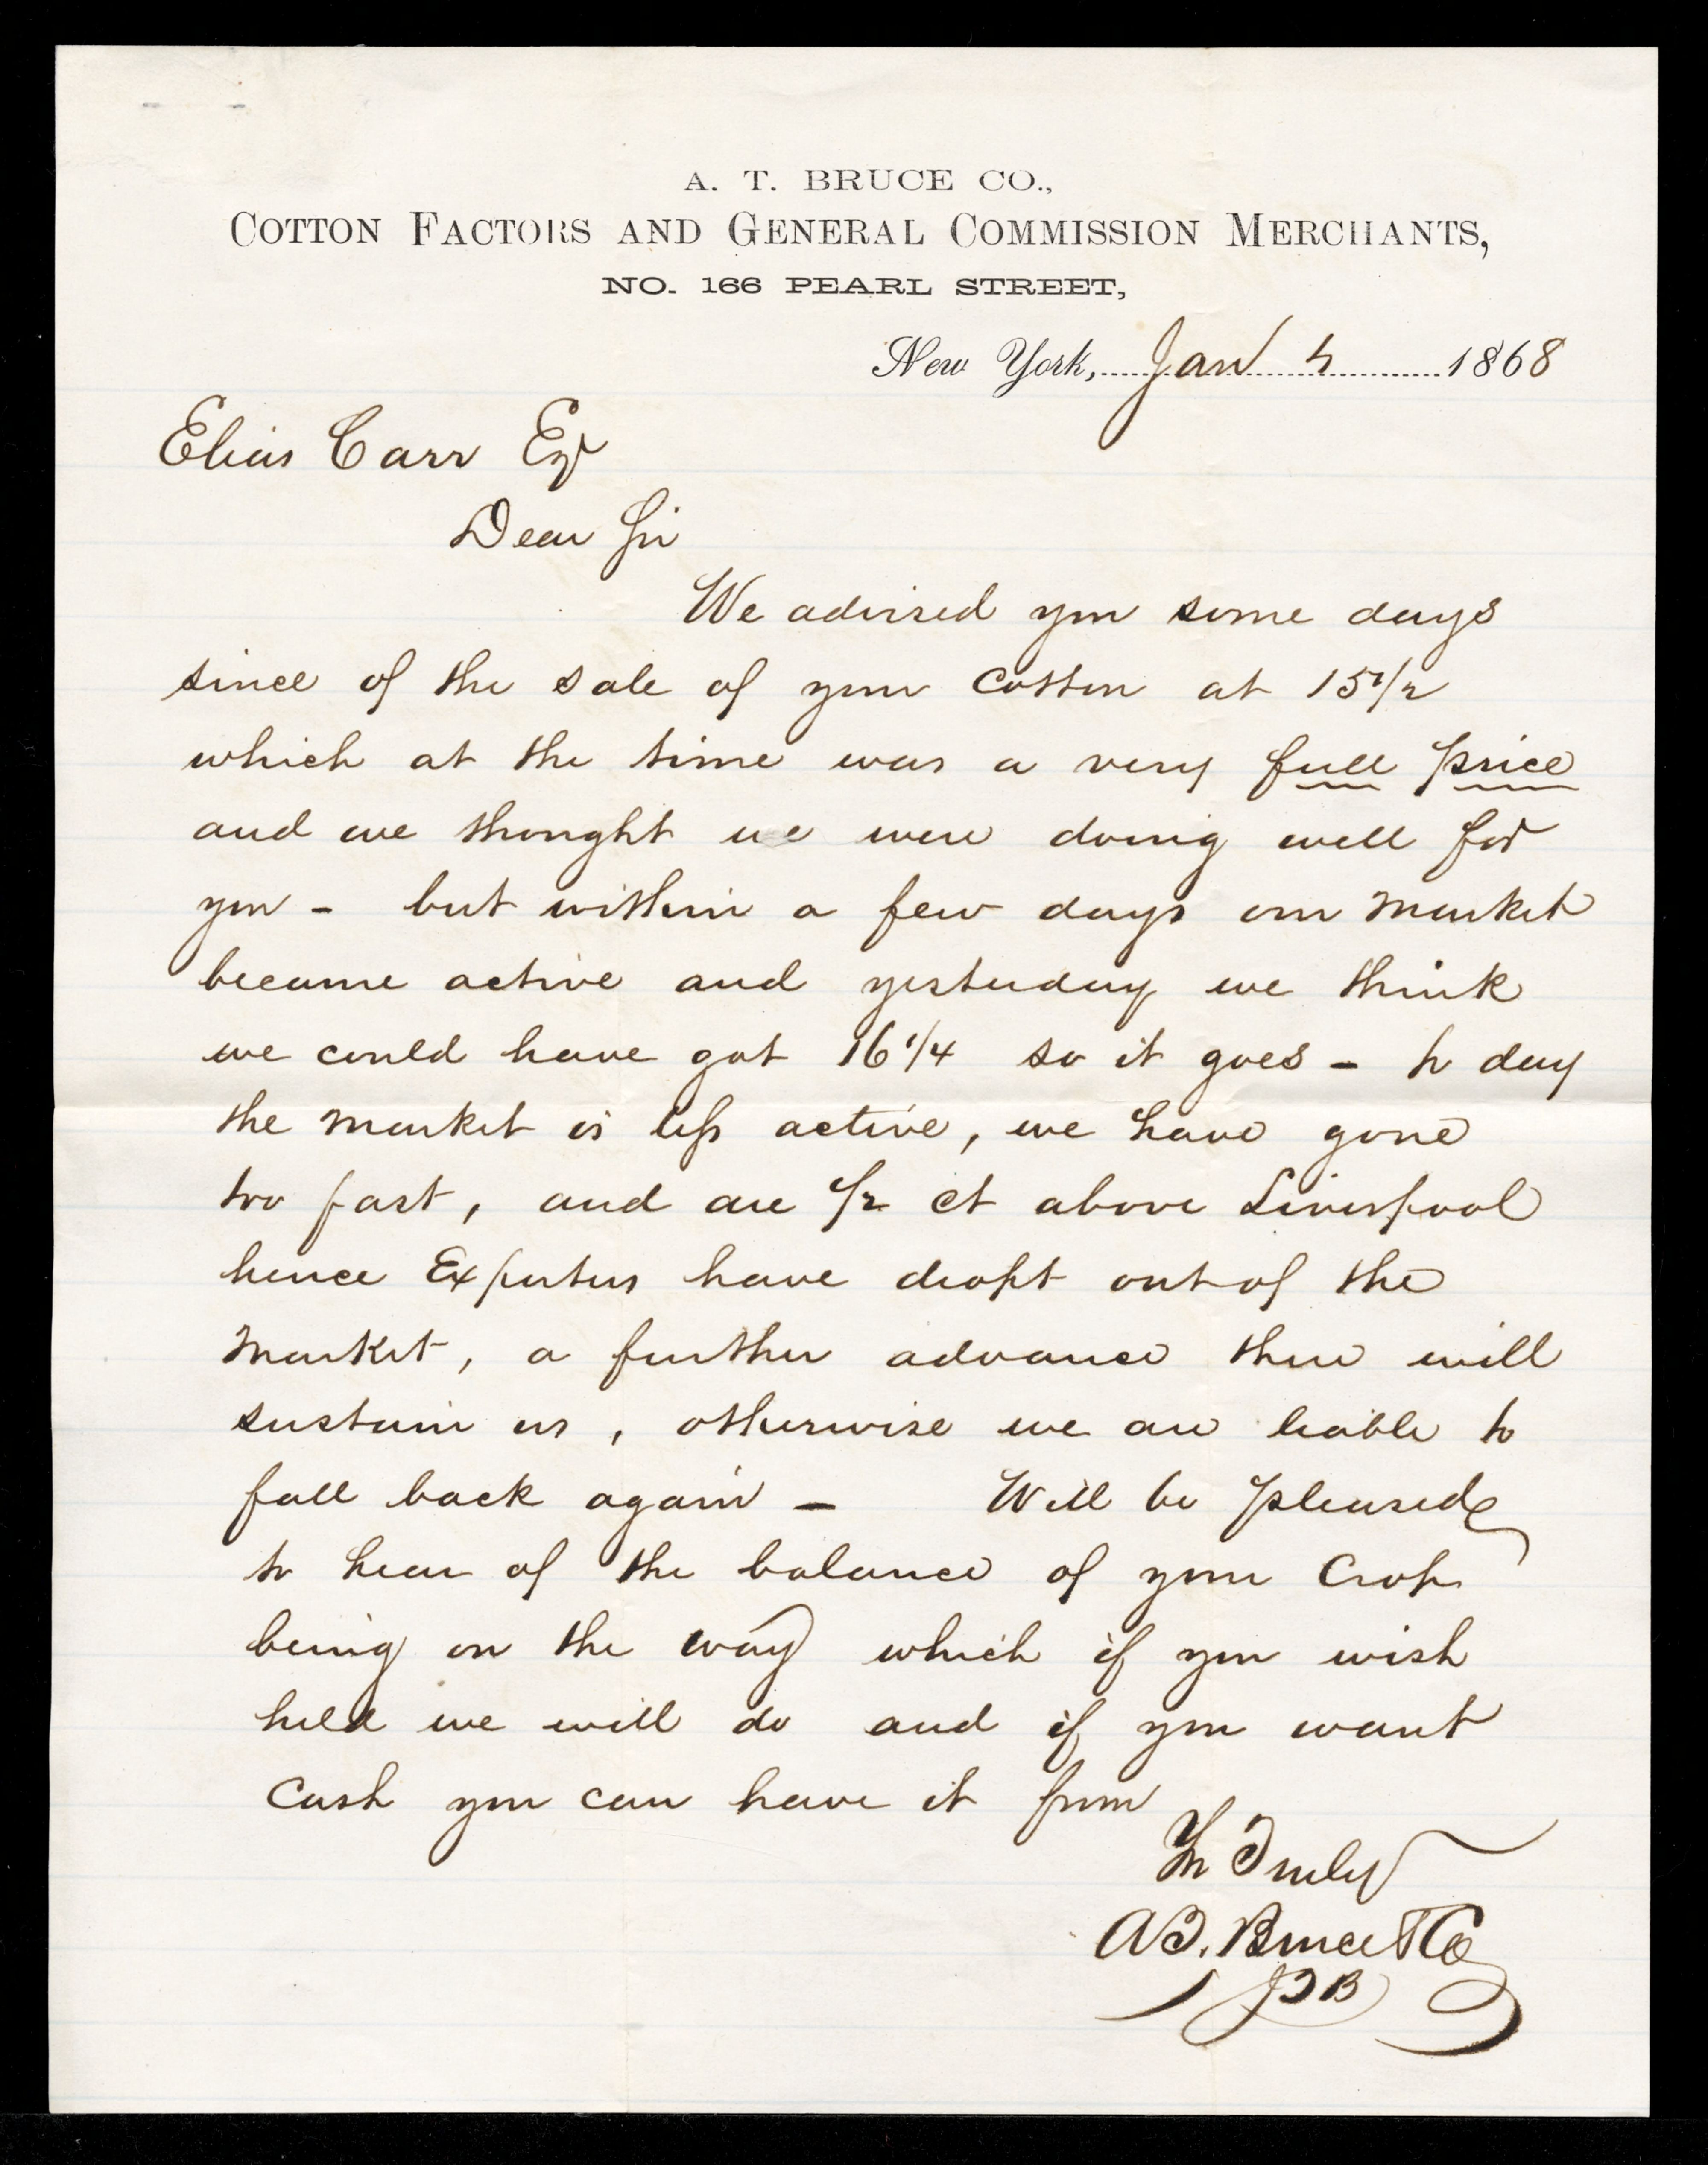 A. T. BRUCE CO.,
COTTON FACTORS AND GENERAL COMMISSION MERCHANTS,
NO. 166 PEARL STREET,
New York, Jan 4 1868
Elias Carr Esqr
Dear Sir
We advised you some days
since of the sale of your Cotton at 15 1/2
which at the time was a very full price
and we thought we were doing well for
you - but within a few days our market
became active and yesterday we think
we could have got 16 1/4 so it goes - to day
the market is less active, we have gone
too fast, and are 1/2 ct above Liverpool
hence Exporters have dropt out of the
market, a further advance there will
sustain us, otherwise we are liable to
fall back again - Will be pleased
to hear of the balance of your Crop
being on the way which if you wish
held we will do and if you want
Cash you can have it from
Yr Truly
A T. Bruce & Co
JTB